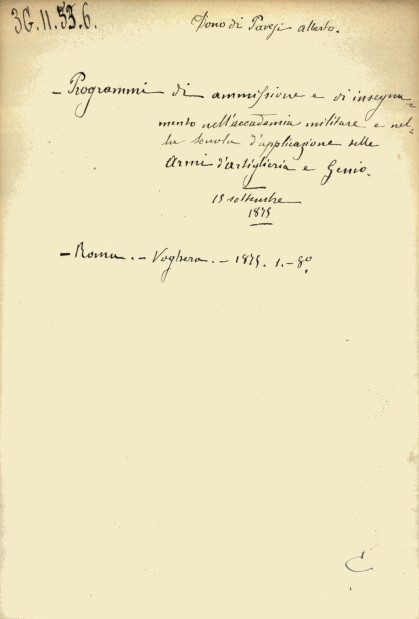 3G.11.53.6.
Dono di Pavesi Alberto.
– Programmi di ammissione e di insegna=
mento nell'accademia militare e nel=
la scuola d'applicazione delle
Armi d'artiglieria e Genio.
15 settembre
1875
– Roma. – Voghera. – 1875. 1. – 8º.
C